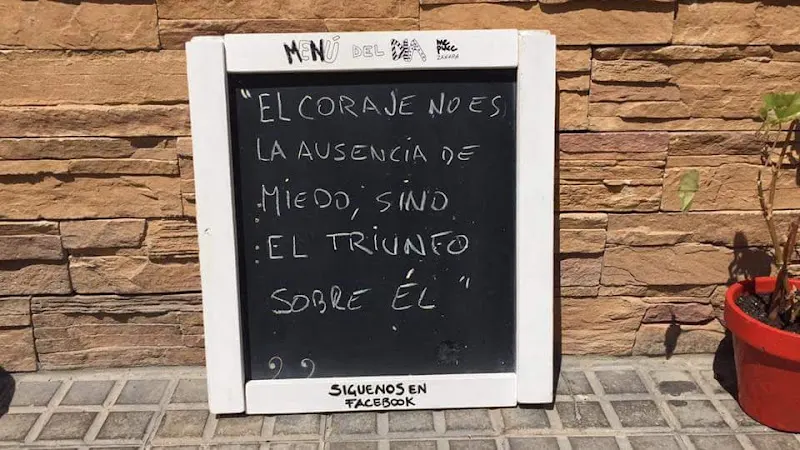 MENÚ DEL DÍA
"EL CORAJE NO ES
LA AUSENCIA DE
MIEDO, SINO
EL TRIUNFO
SOBRE ÉL"
SIGUENOS EN
FACEBOOK